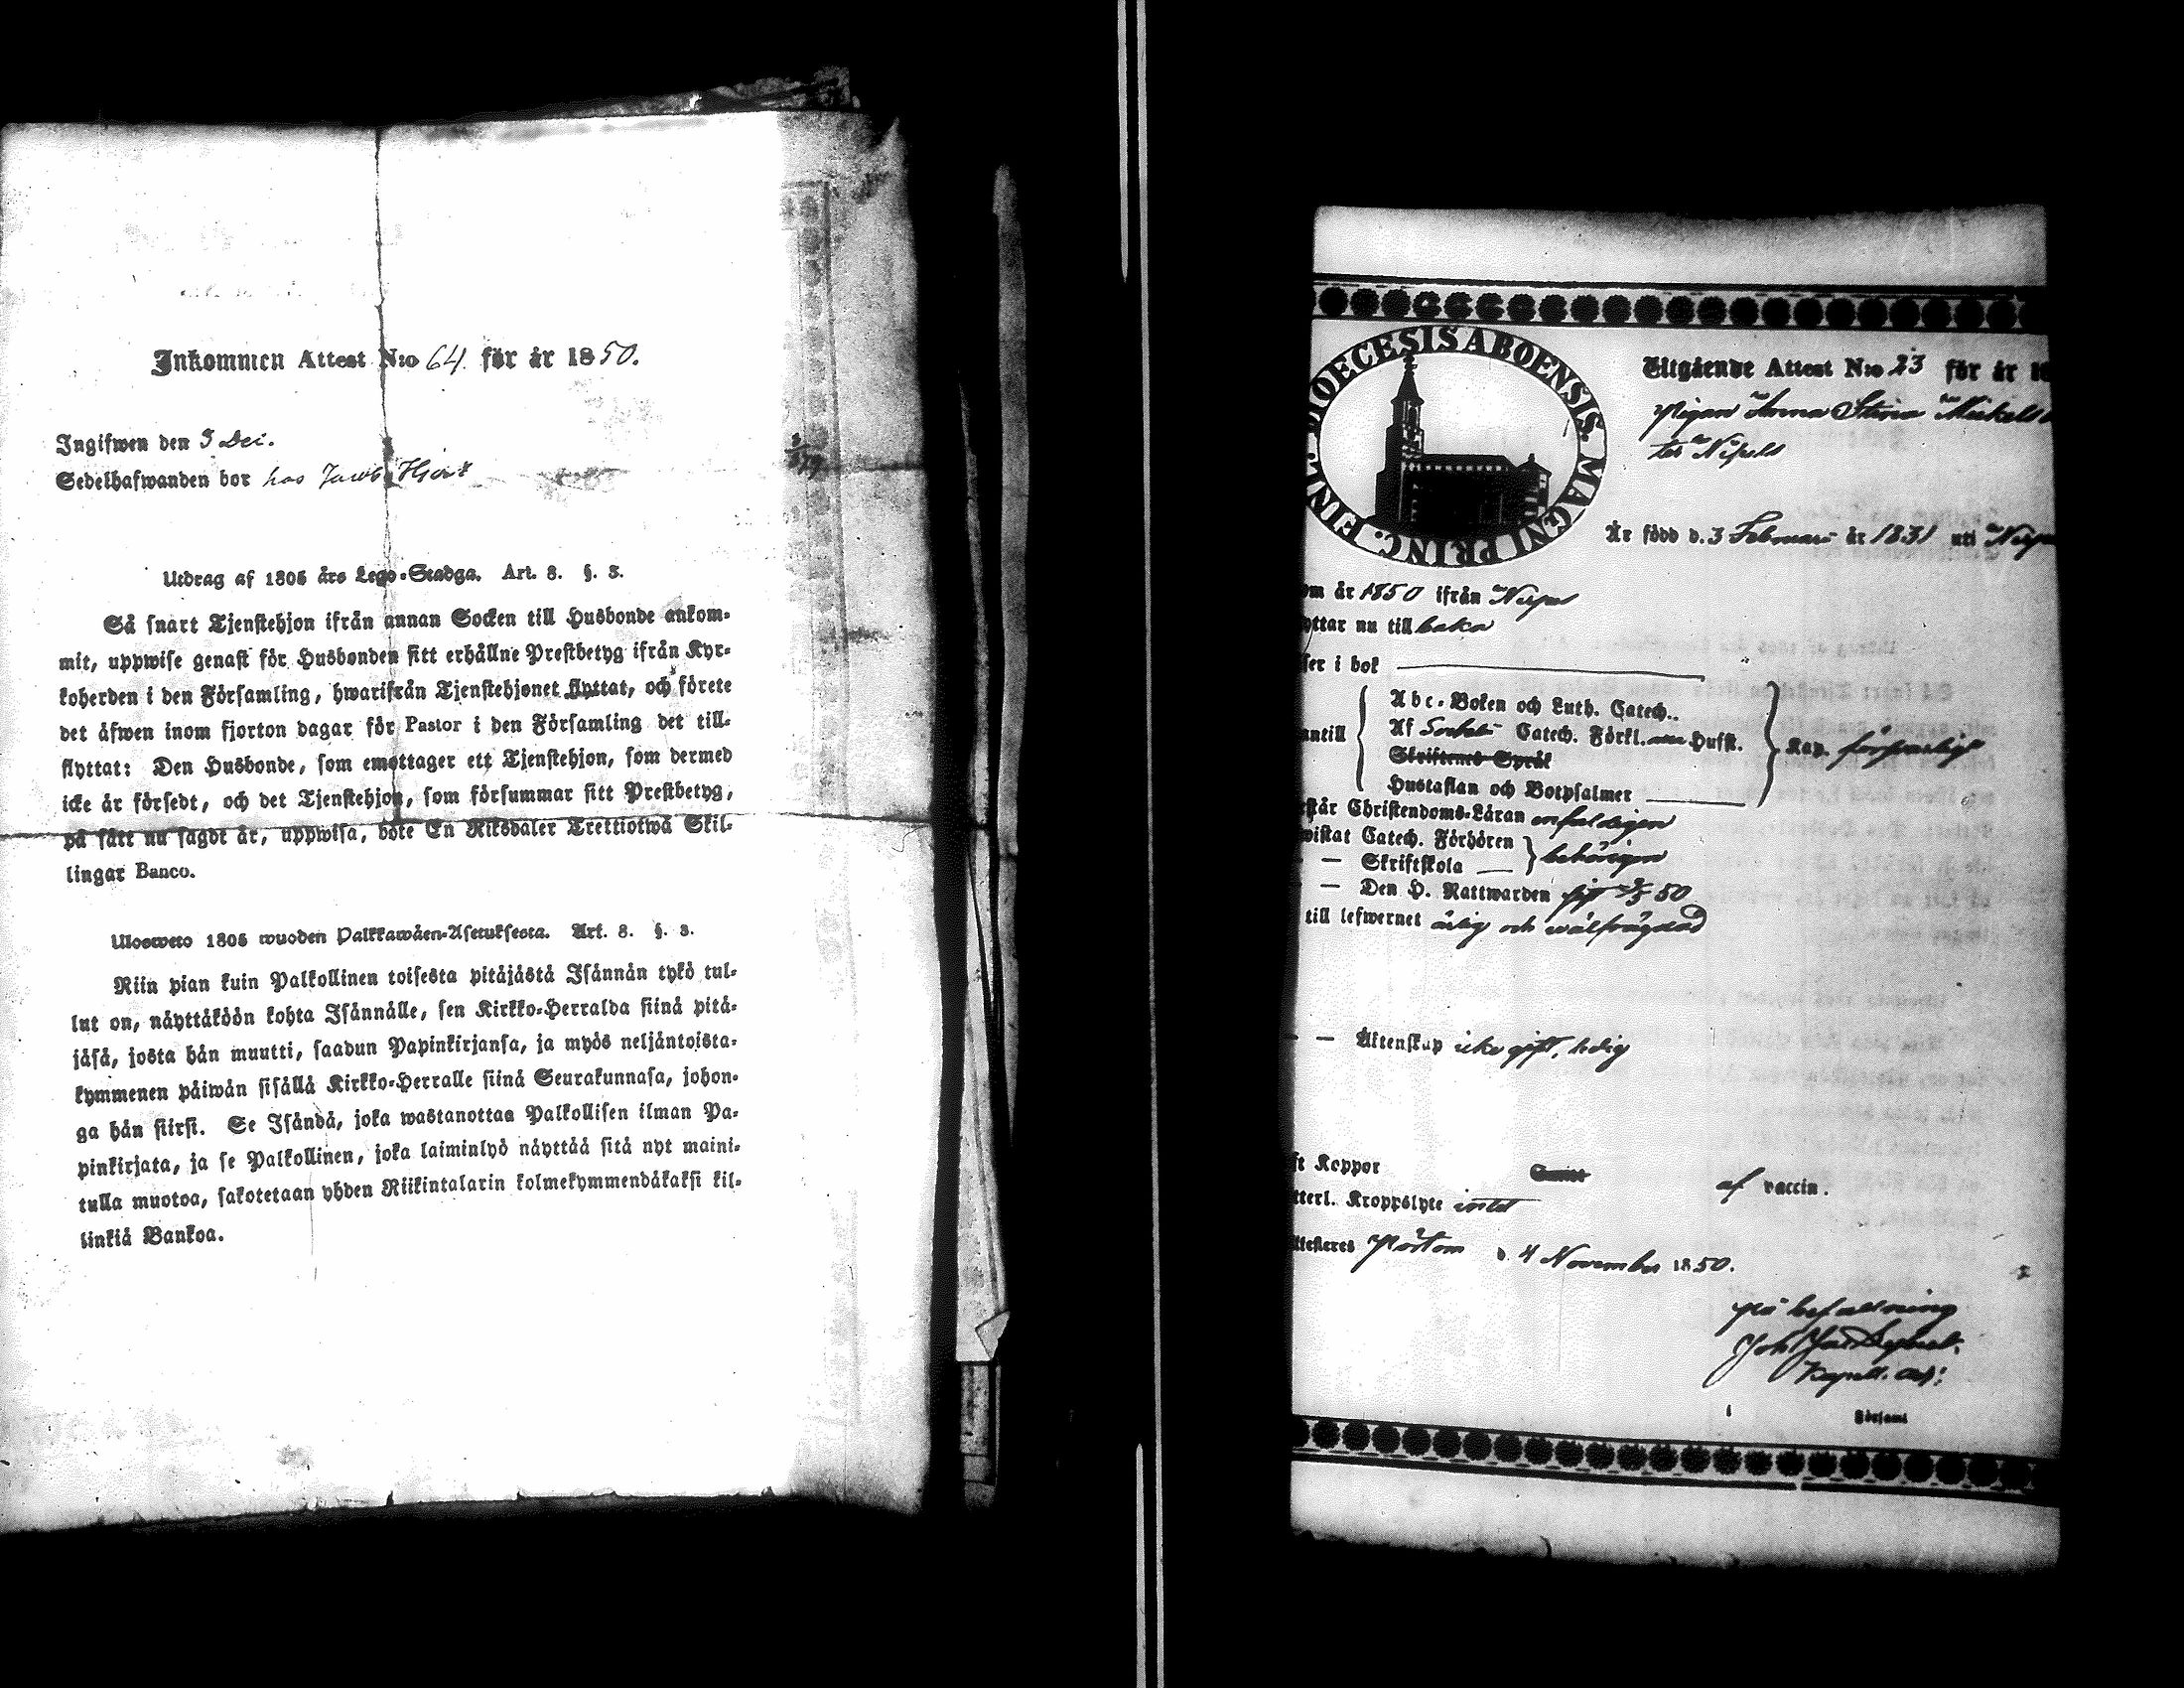 Inkommen Attest N:o 64. för år 1850.
Ingifwen den 3 Dec.
Sedelhafwanden bor hos Jacob Hjort
Utdrag af 1805 års Lego-Stadga. Art. 8. §. 3.
Så snart Tjenstehjon ifrån annan Socken till Husbonde ankom-
mit, uppwise genast för Husbonden sitt erhållne Prestbetyg ifrån Kyr-
koherden i den Församling, hwarifrån Tjenstehjonet flyttat, och förete
det äfwen inom fjorton dagar för Pastor i den Församling det till-
flyttat: Den Husbonde, som emottager ett Tjenstehjon, som dermed
icke är försedt, och det Tjenstehjon, som försummar sitt Prestbetyg,
på sätt nu sagdt är, uppwisa, böte En Riksdaler Trettiotwå Skil-
lingar Banco.
Ulosweto 1805 wuoden Palkkawäen-Asetuksesta. Art. 8. §. 3.
Niin pian kuin Palkollinen toisesta pitäjästä Isännän tykö tul-
lut on, näyttäköön kohta Isännälle, sen Kirkko-Herralda siinä pitä-
jäsä, josta hän muutti, saadun Papinkirjansa, ja myös neljäntoista-
kymmenen päiwän sisällä Kirkko-Herralle siinä Seurakunnasa, johon-
ga hän siirsi. Se Isändä, joka wastanottaa Palkollisen ilman Pa-
pinkirjata, ja se Palkollinen, joka laiminlyö näyttää sitä nyt maini-
tulla muotoa, sakotetaan yhden Riikintalarin kolmekymmendäkaksi kil-
linkiä Bankoa.
DIOECESIS ABOENSIS. MAGNI PRINC. FINL.
Utgående Attest N:o 23 för år 18
Pigan Anna Stina Mickels
ter Näpels
Är född d. 3 Februari år 1831 uti
om år 1850 ifrån
yttar nu till baka
ser i bok
Abc-Boken och Luth. Catech..
antill Af Catech. Förkl. Hust. Kap. försvarligt
Skriftenes Språk
Hustaflan och Botpsalmer
står Christendoms-Läran enfaldigen
wistat Catech. Förhören behörigen
— Skriftskola —
— Den H. Nattwarden sist 50
till lefwernet ärlig och wälfrägdad
— — Äktenskap icke gift, ledig
ft Koppor af vaccin.
tterl. Kroppslyte intet
ttesteres Pörtom d. 4 November 1850.
På befallning
Kapell. Adj:
i Församl